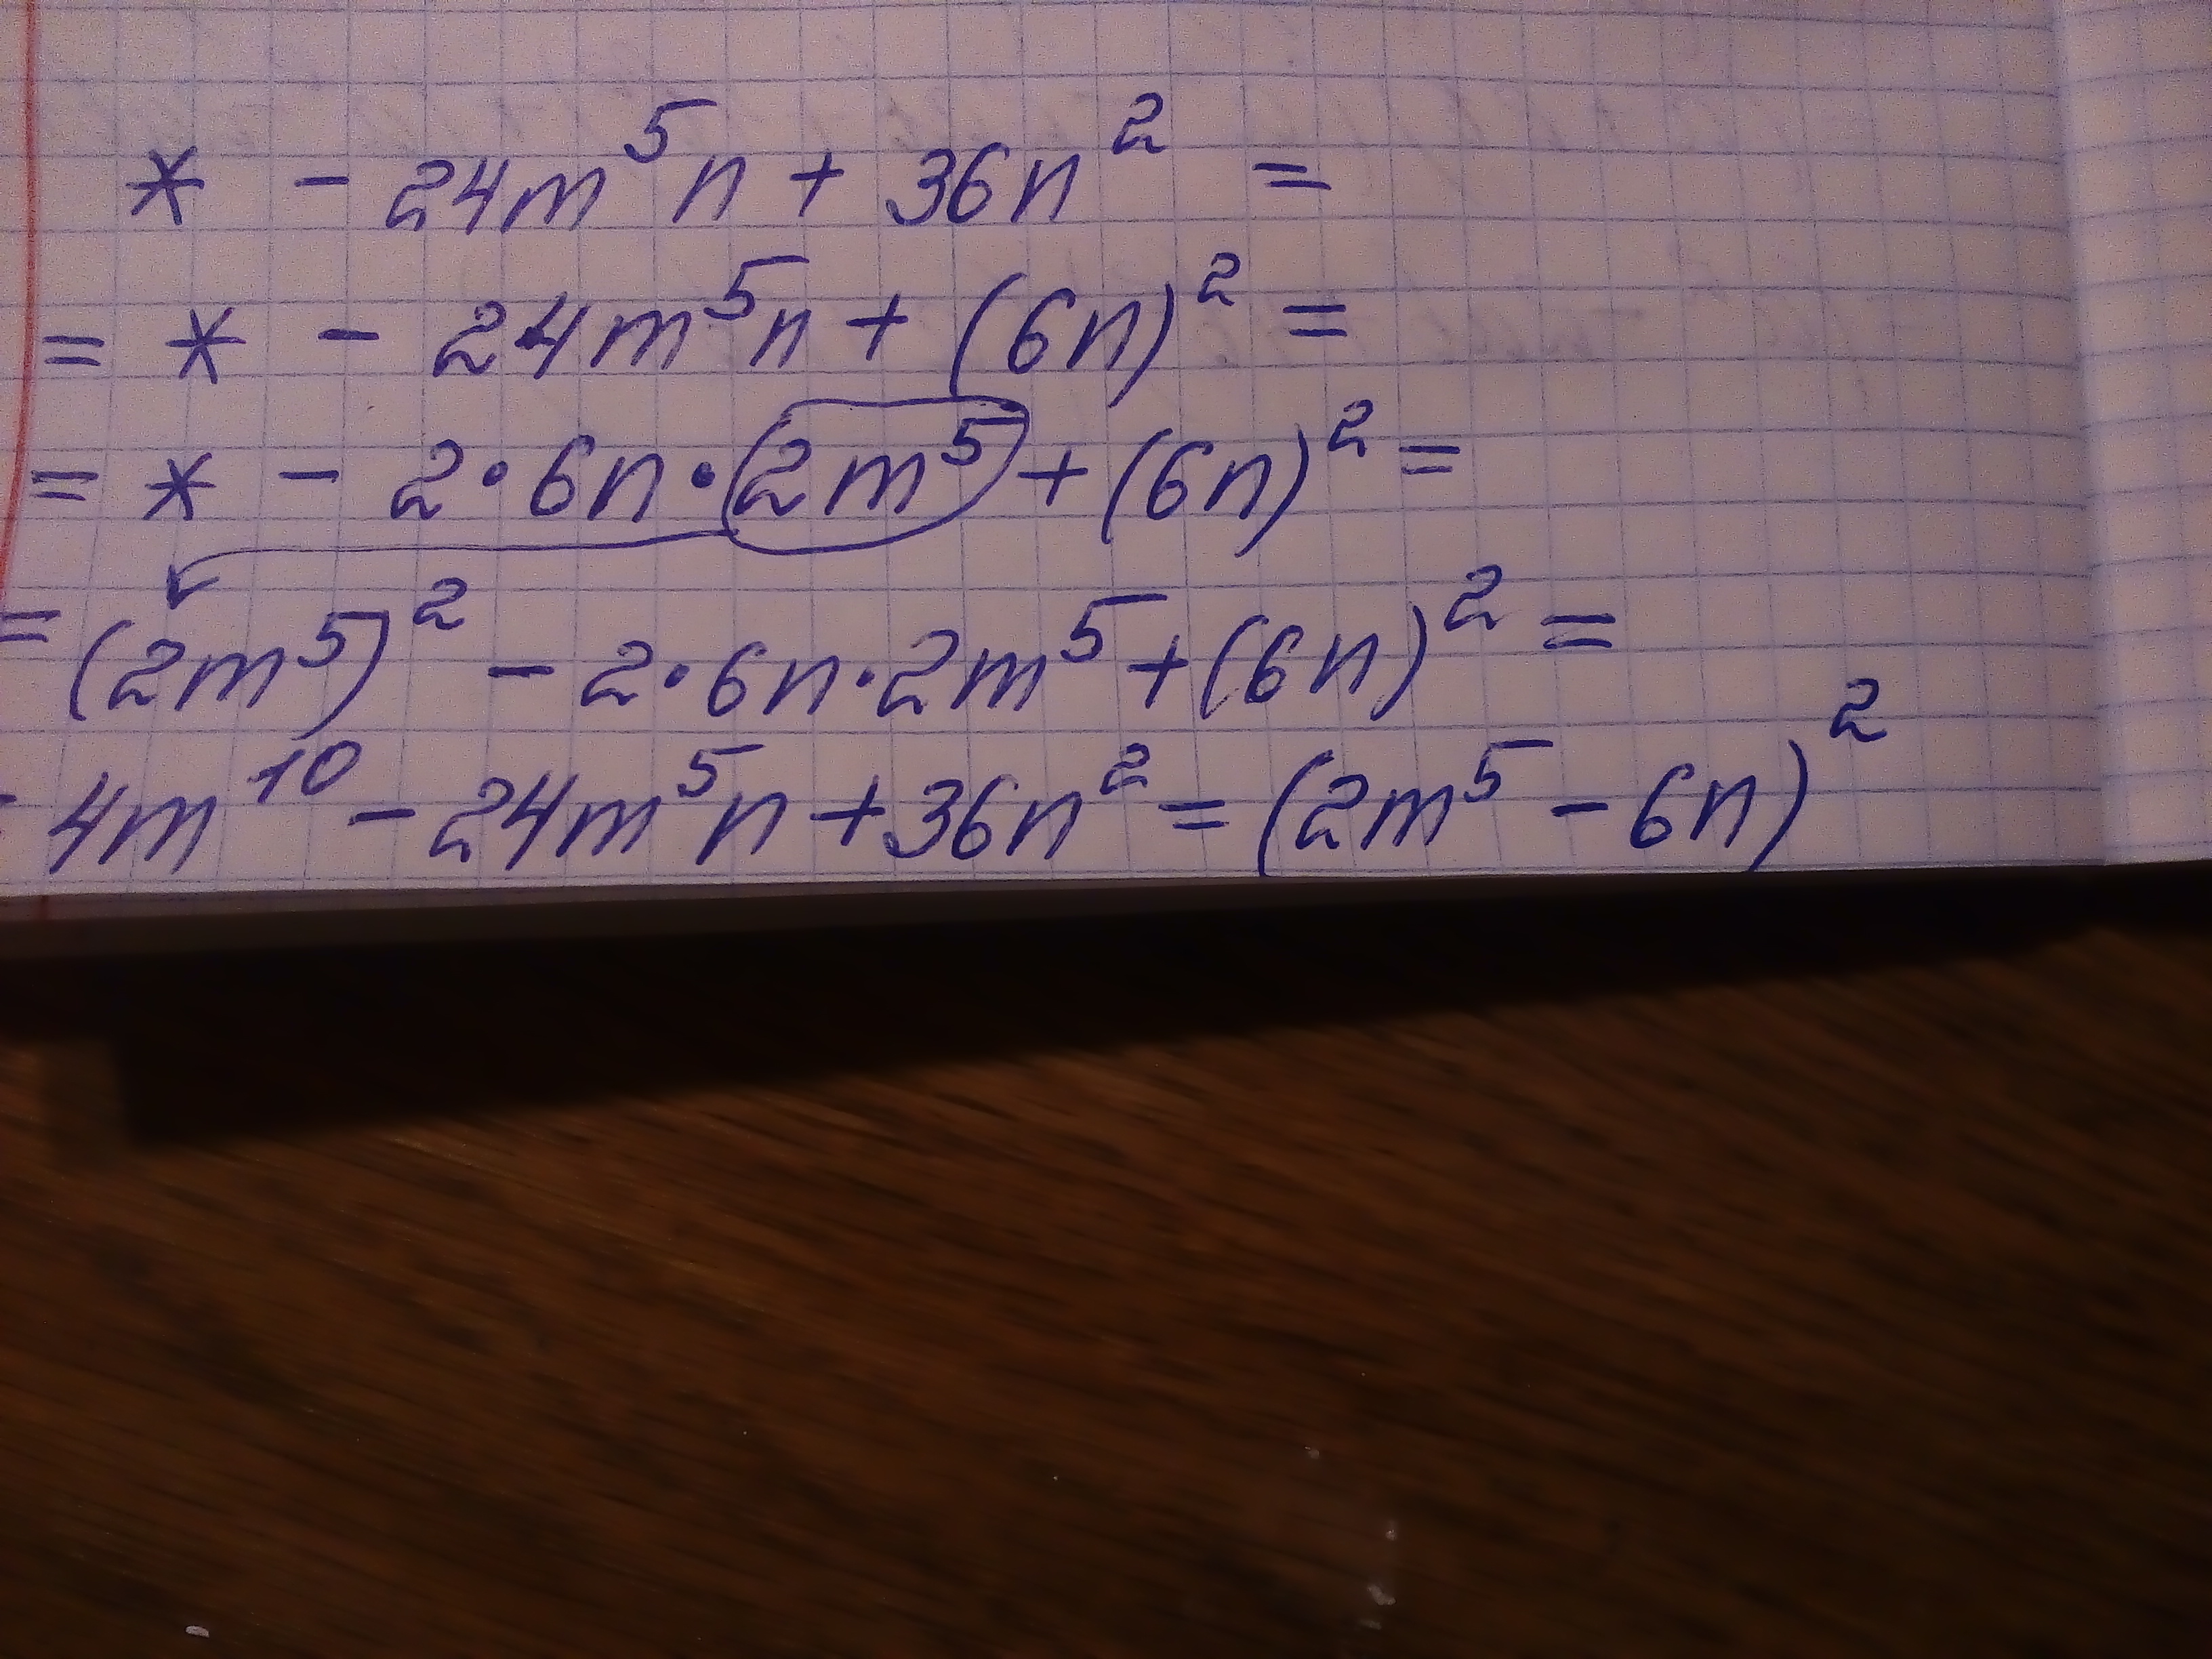 * - 24m⁵n + 36n² =
= * - 24m⁵n + (6n)² =
= * - 2·6n·(2m⁵) + (6n)² =
= (2m⁵)² - 2·6n·2m⁵ + (6n)² =
- 4m¹⁰ - 24m⁵n + 36n² = (2m⁵ - 6n)²